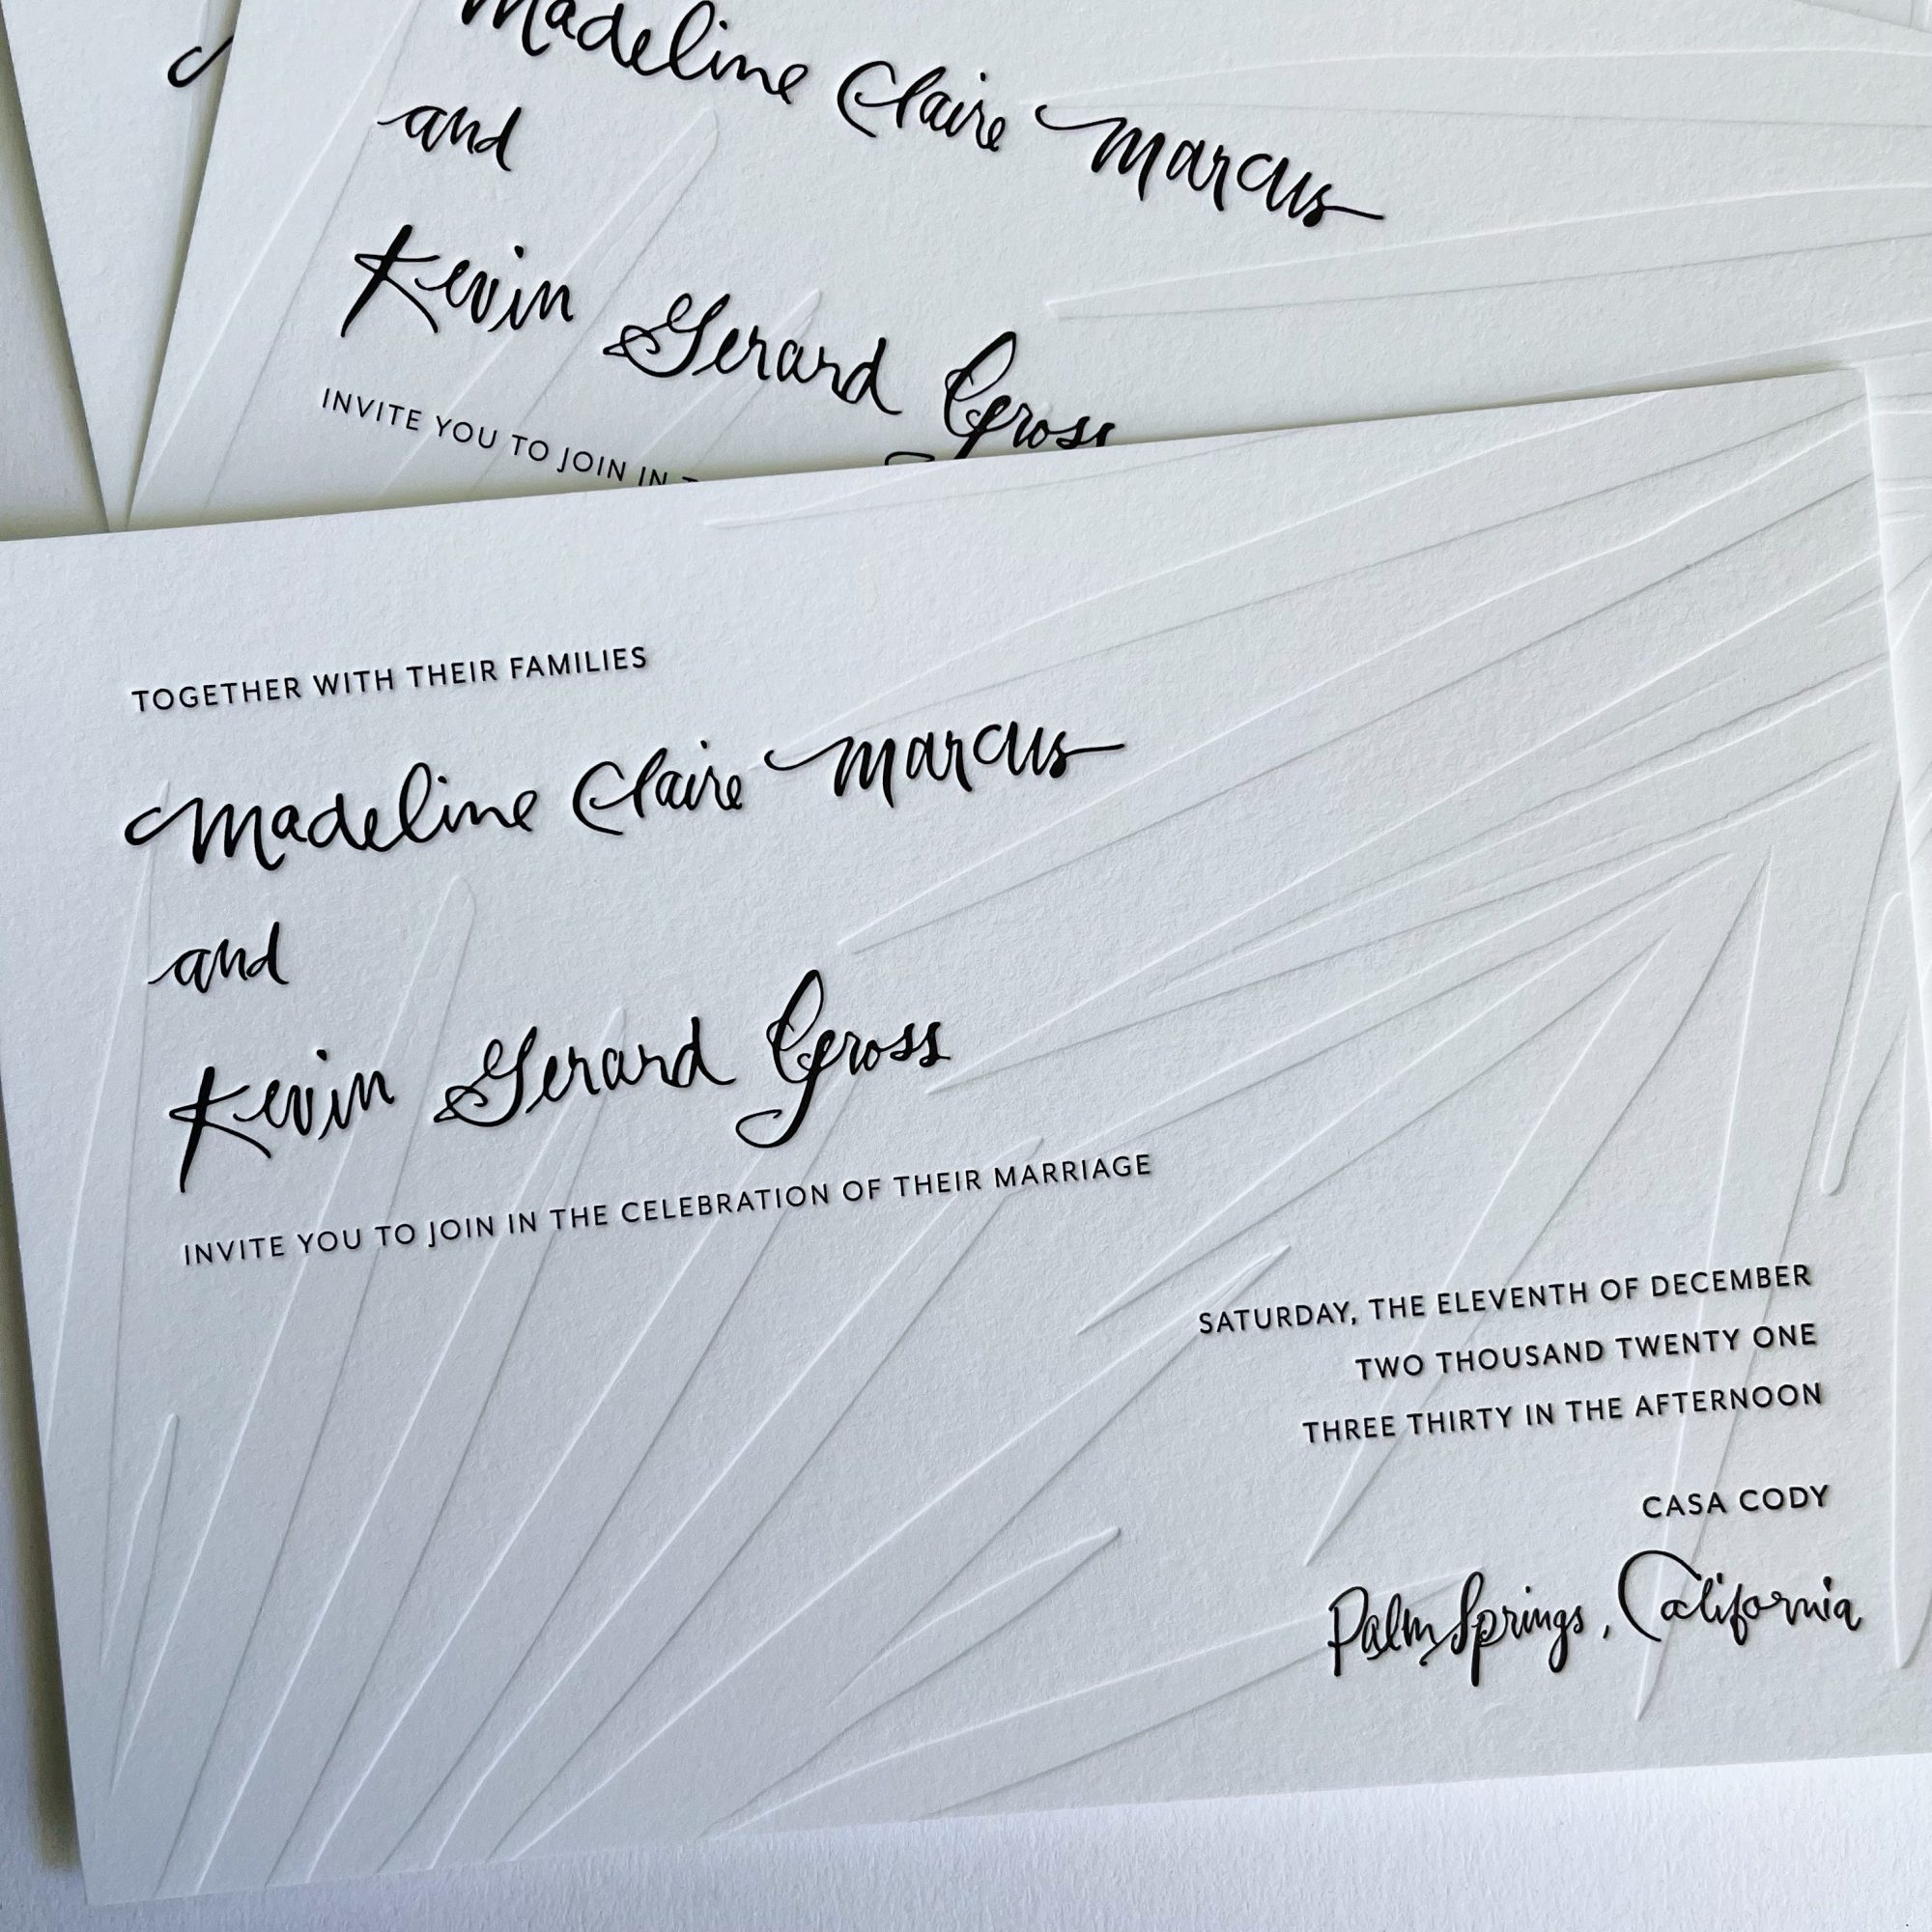 Madeline Claire Marcus
and
Kevin Gerard Gross
INVITE YOU TO JOIN IN
TOGETHER WITH THEIR FAMILIES
Madeline Claire Marcus
and
Kevin Gerard Gross
INVITE YOU TO JOIN IN THE CELEBRATION OF THEIR MARRIAGE
SATURDAY, THE ELEVENTH OF DECEMBER
TWO THOUSAND TWENTY ONE
THREE THIRTY IN THE AFTERNOON
CASA CODY
Palm Springs, California